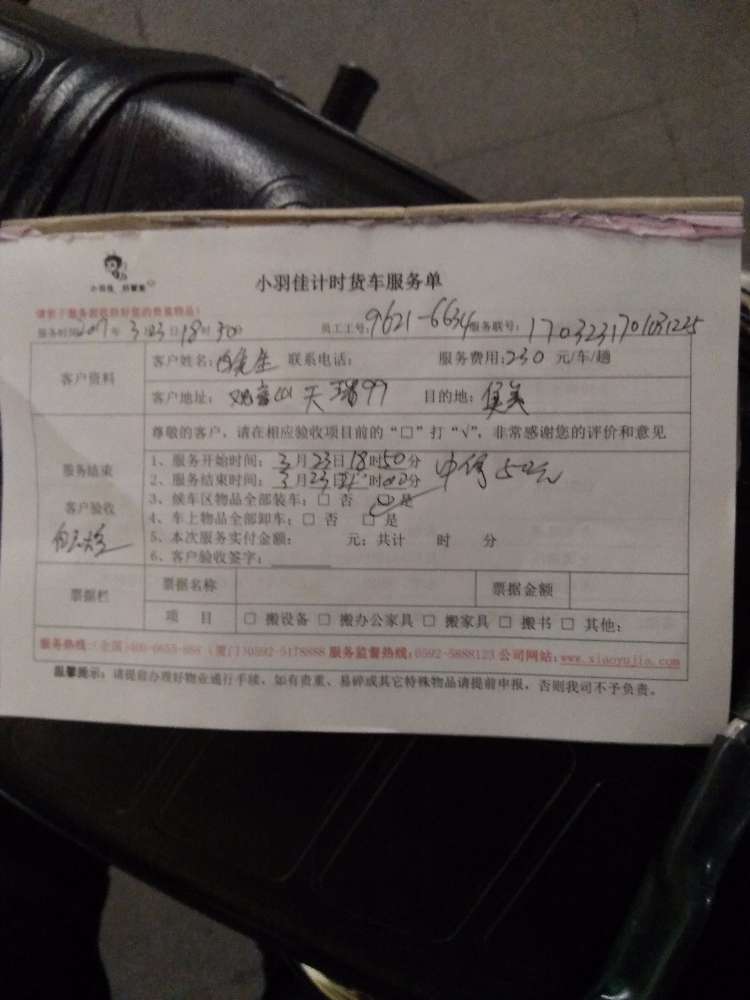 小羽佳 好管家
小羽佳计时货车服务单
服务时间2017年3月23日18时30分 员工工号:9621-6634 服务联号:1703231701031225
客户资料
客户姓名:白先生 联系电话: 服务费用:230 元/车/趟
客户地址: 观音山天瑞99 目的地:集美
尊敬的客户,请在相应验收项目前的“□”打“√”,非常感谢您的评价和意见
服务结束
客户验收
1、服务开始时间:3月23日18时50分 中停50元
2、服务结束时间:3月23日 时00分
3、候车区物品全部装车:□ 否 □ 是
4、车上物品全部卸车:□ 否 □ 是
5、本次服务实付金额: 元;共计 时 分
6、客户验收签字:
票据栏
票据名称 票据金额
项 目 □ 搬设备 □ 搬办公家具 □ 搬家具 □ 搬书 □ 其他:
服务热线:(全国)400-6655-888 (厦门)0592-5178888 服务监督热线:0592-5888123 公司网站:www.xiaoyujia.com
温馨提示:请提前办理好物业通行手续,如有贵重、易碎或其它特殊物品请提前申报,否则我司不予负责。